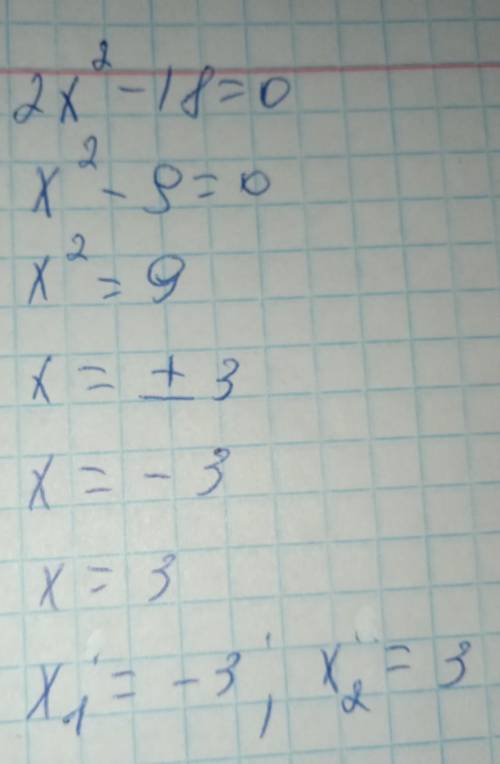 2x² - 18 = 0
x² - 9 = 0
x² = 9
x = ± 3
x = - 3
x = 3
x₁ = - 3, x₂ = 3